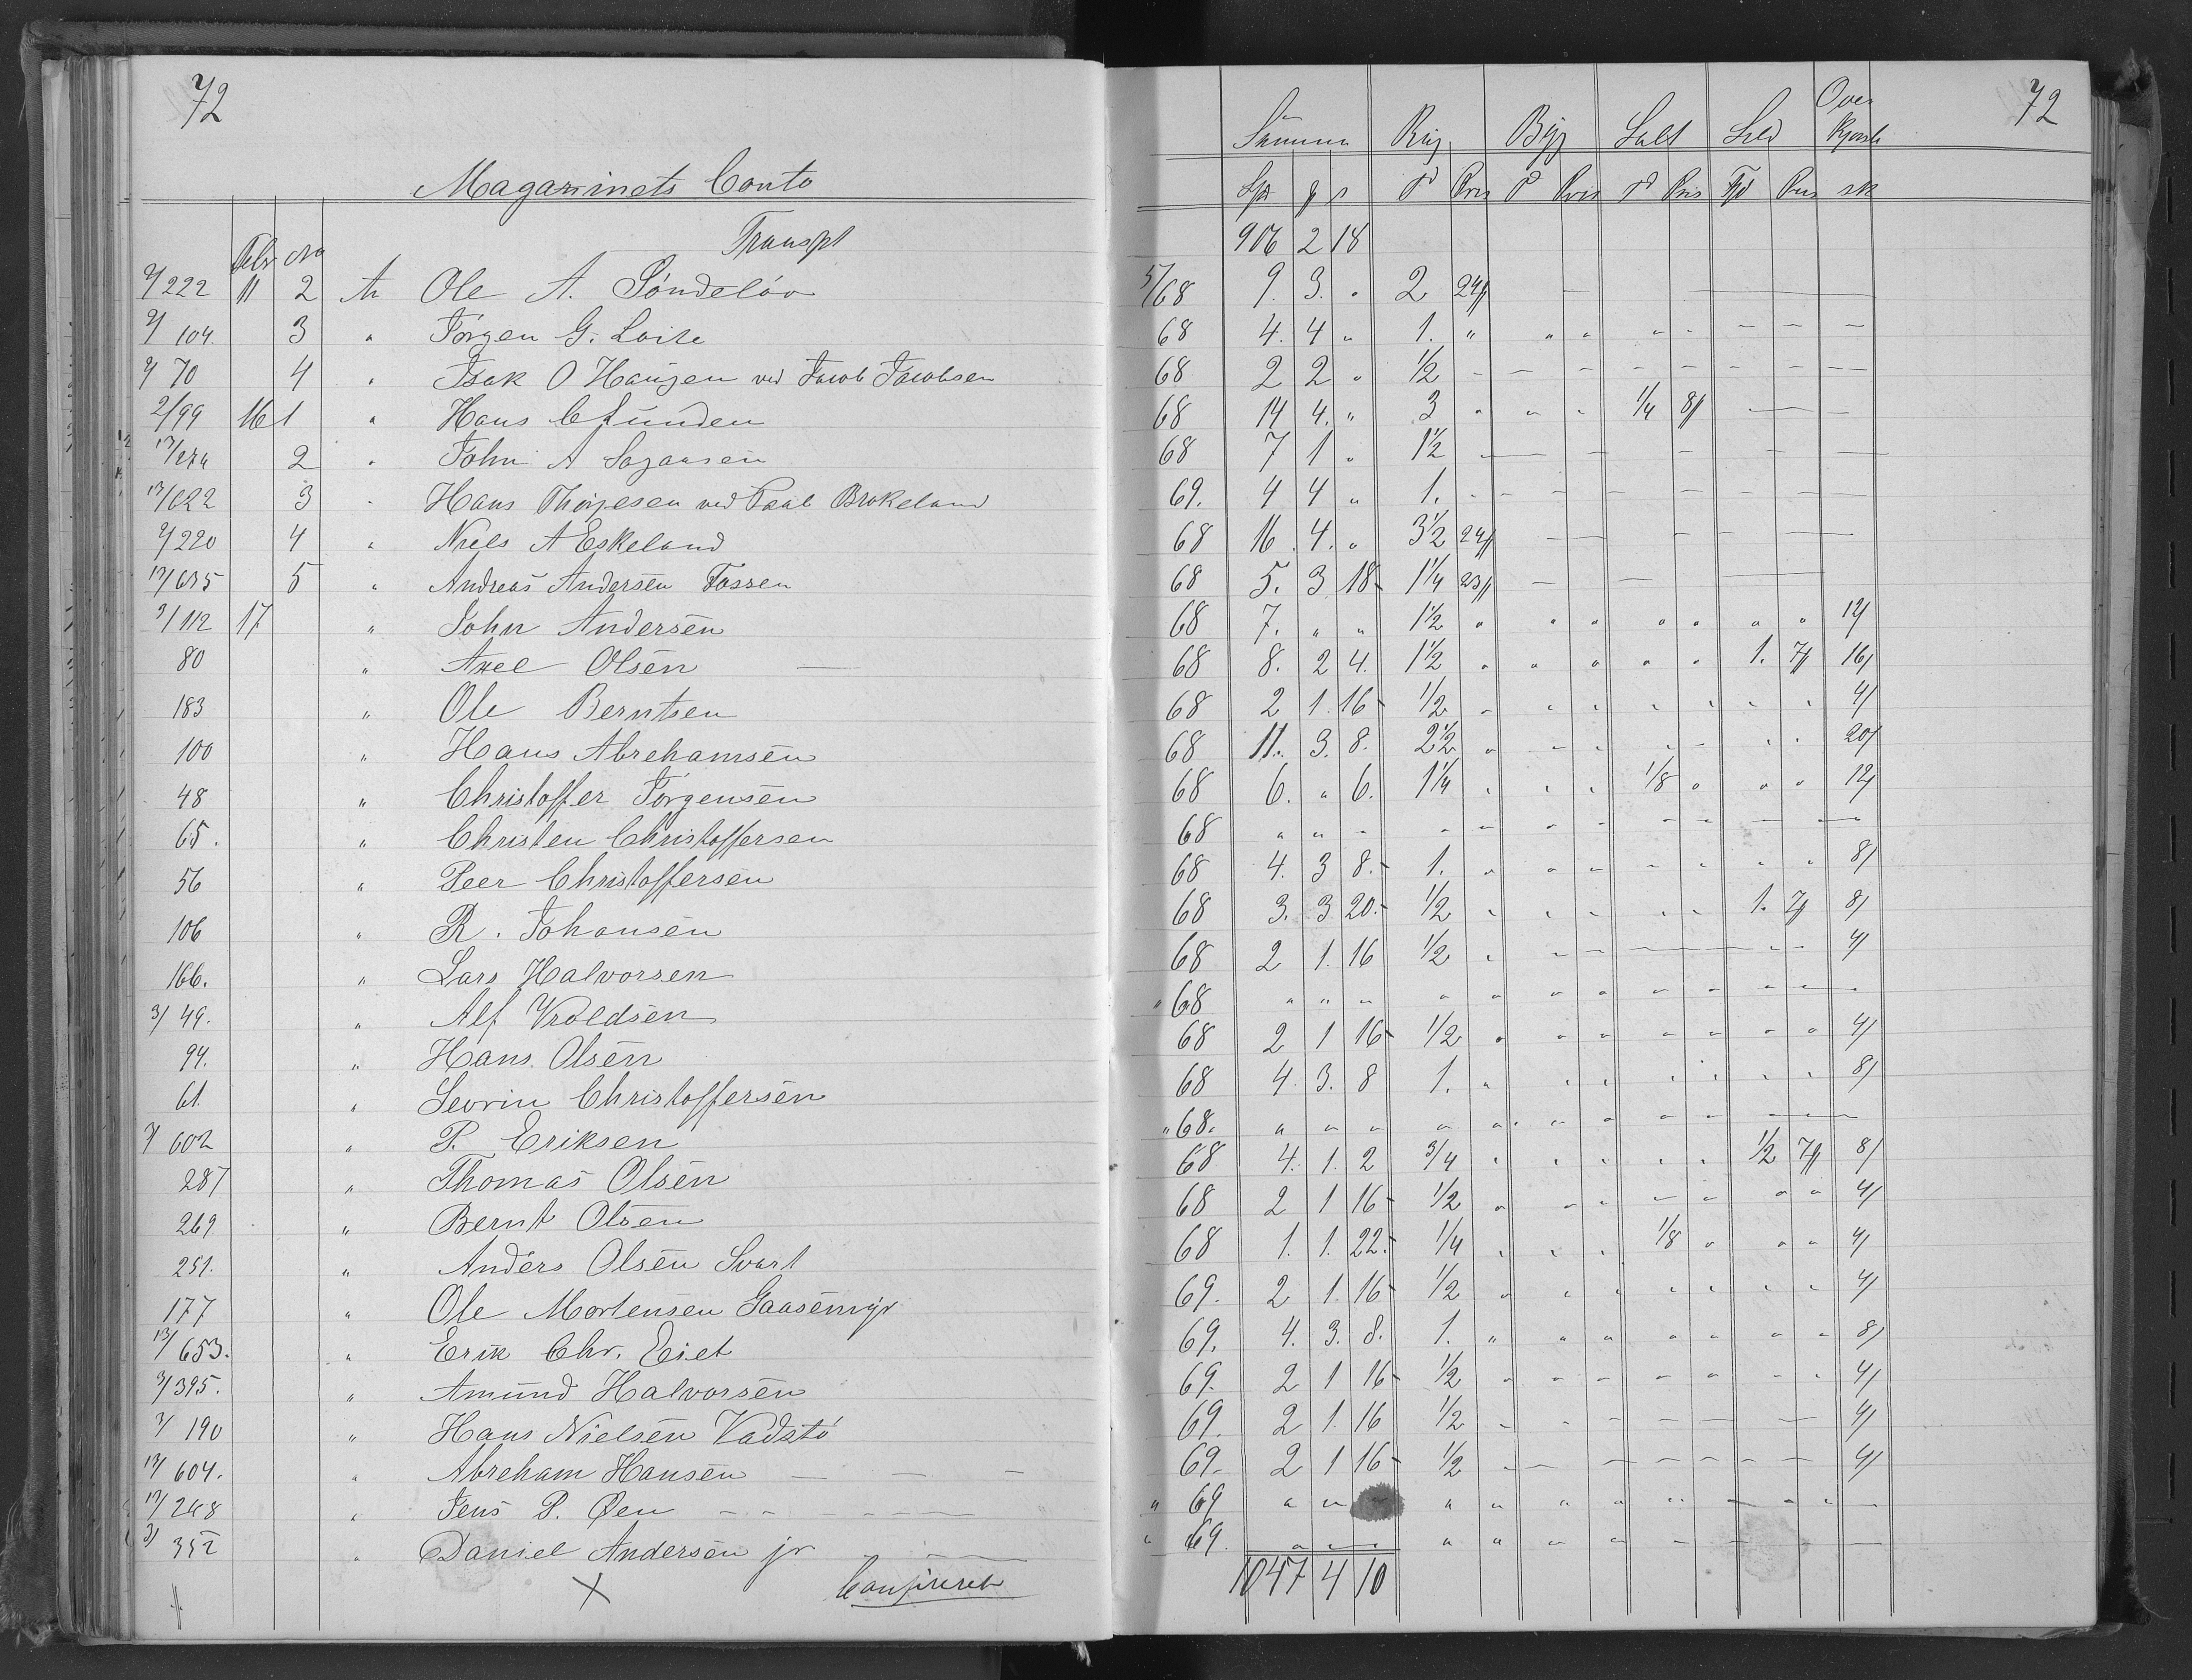 72
Magazinets Conto
Febr No Transpt
2/222 11 2 An Ole A. Söndelöv
2/104. 3 " Jörgen G. Loite
2/70 4 " Isak O Haugen ved Jacob Jacobsen
2/99 16 1 " Hans C Lunden
13/ 2 " John A Sagaasen
13/622 3 " Hans Thorjesen ved Paal Brokeland
2/220 4 " Niels A Eskeland
13/635 5 " Andreas Andersen Fossen
3/112 17 " John Andersen
80 " Axel Olsen —
183 " Ole Berntsen
100 " Hans Abrehamsen
48 " Christoffer Jörgensen
65. " Christen Christoffersen
56 " Peer Christoffersen
106 " R. Johansen
166. " Lars Halvorsen
3/49. " Alf Vroldsen
94. " Hans Olsen
61. " Sevrin Christoffersen
602 " P. Eriksen
287 " Thomas Olsen
269 " Bernt Olsen
251. " Anders Olsen Svart
177 " Ole Mortensen Gaasemyr
13/653. " Erik Chr. Eiet
3/395. " Amund Halvorsen
3/190 " Hans Nielsen Vadstö
13/604. " Abreham Hansen — — —
13/248 " Jens P. Øen — — — — —
3/352 " Daniel Andersen jr
Confereret
72
Summa Rug Byg Salt Sild Over
Pris Pris Pris Pris
906 2 18
5/68 9. 3. " 2 24/
68 4. 4 " 1. " " " " " — — —
68 2 2 " 1/2 — — — — — — — —
68 14 4. " 3 " " " 1/4 8/ — —
68 7 1 " 1 1/2 — — — — —
69. 4 4 " 1. — — — — — — — —
68 16. 4. " 3 1/2 24/ — — — —
68 5. 3 18 1 1/4 23/ — — —
68 7. " " 1 1/2 " " " " " " " 12/
68 8. 2 4. 1 1/2 " " " " " 1. 7/ 16/
68 2 1 16 1/2 " " " " " " " 4/
68 11. 3. 8. 2 1/2 " " " " " " " 20/
68 6. " 6. 1 1/4 " " " 1/8 " " " 12/
68 " " " " " " " " " — —
68 4. 3 8. 1. " " " " " " " 8/
68 3. 3 20. 1/2 " " " " " 1. 7/ 8/
68 2 1. 16 1/2 " " — — — 4/
" 68 " " " " " " " " " " " "
68 2 1 16 1/2 " " " " " " " 4/
68 4. 3. 8 1. " " " " " " " 8/
" 68. " " " " " " " " " — — —
68 4. 1. 2 3/4 " " " " " 1/2 7/ 8/
68 2 1 16 1/2 " " " " " " " 4/
68 1. 1. 22. 1/4 " " " 1/8 " " " 4/
69. 2 1. 16 1/2 " " " " " " " 4/
69. 4. 3. 8. 1. " " " " " " " 8/
69. 2 1 16 1/2 " " " " " " " 4/
69. 2 1. 16 1/2 " " " — — — 4/
69. 2 1 16 1/2 — — — — — — — 4/
" 69 " " " " " " " " " " —
" 69. " " " " " " " — — — —
1047 4 10